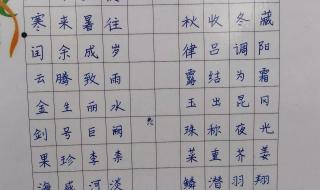 寒来暑往 秋收冬藏
闰余成岁 律吕调阳
云腾致雨 露结为霜
金生丽水 玉出昆冈
剑号巨阙 珠称夜光
果珍李柰 菜重芥姜
海咸河淡 鳞潜羽翔